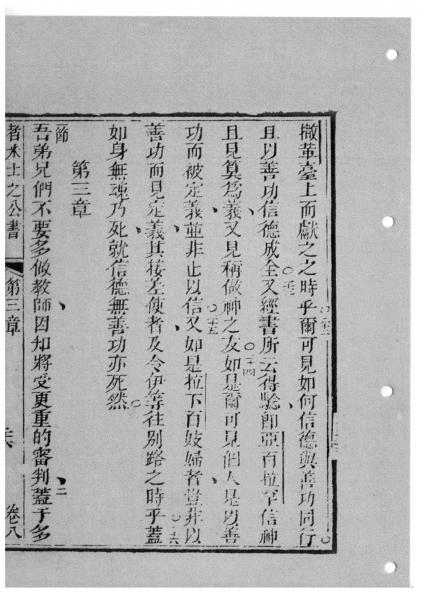 撒革臺上而獻之之時乎爾可見如何信德與善功同行
且以善功信德成全又經書所云得驗即亞百拉罕信神
且見算為義又見稱做神之友如是爾可見但人是以善
功而被定義並非止以信又如是拉下百妓婦者豈非以
善功而見定義其接差使者及令伊等往別路之時乎蓋
如身無魂乃死就信德無善功亦死然
第三章
節
吾弟兄們不要多做教師因知將受更重的審判蓋于多
者米士之公書
第三章
卷八